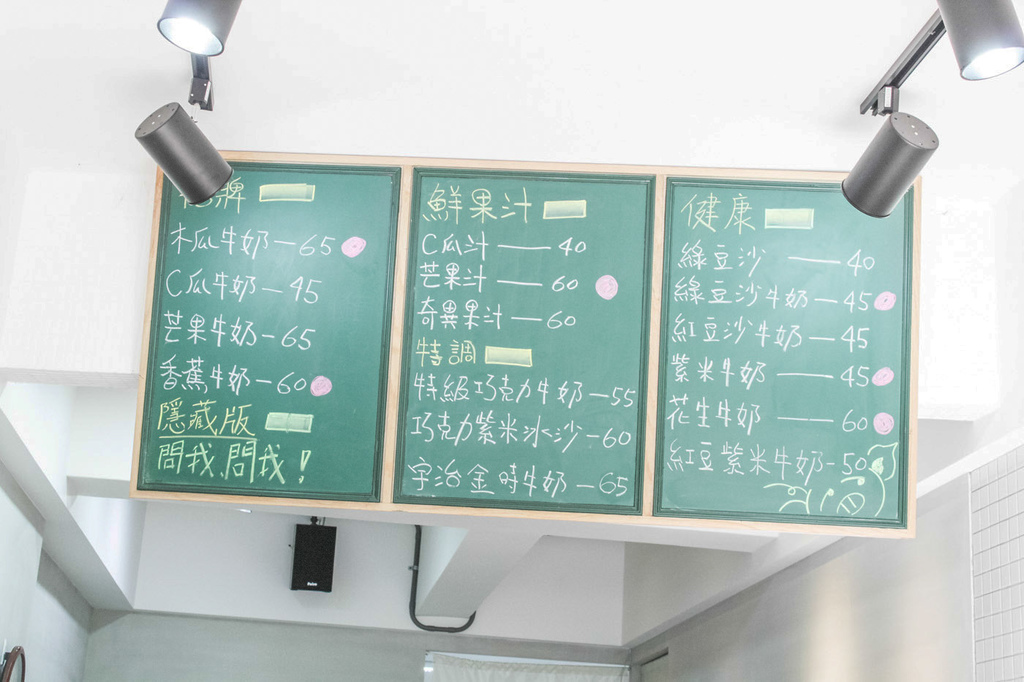 牌
木瓜牛奶—65
C瓜牛奶—45
芒果牛奶—65
香蕉牛奶—60
隱藏版
問我、問我!
鮮果汁
C瓜汁——40
芒果汁——60
奇異果汁—60
特調
特級巧克力牛奶—55
巧克力紫米冰沙—60
宇治金時牛奶—65
健康
綠豆沙——40
綠豆沙牛奶—45
紅豆沙牛奶—45
紫米牛奶——45
花生牛奶——60
紅豆紫米牛奶-50